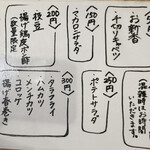 混雑時はお時間
いただきます。
お新香
・千切りキャベツ
150円
・マカロニサラダ
200円
・枝豆
・揚げ鶏皮ポン酢
数量限定
250円
・ポテトサラダ
300円
・タラフライ
・ハムカツ
・メンチカツ
・コロッケ
・揚げ春巻き